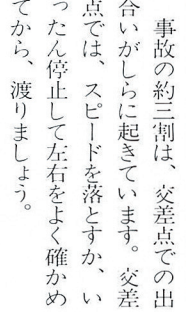 事故の約三割は、交差点での出
合いがしらに起きています。交差
点では、スピードを落とすか、い
ったん停止して左右をよく確かめ
てから、渡りましょう。